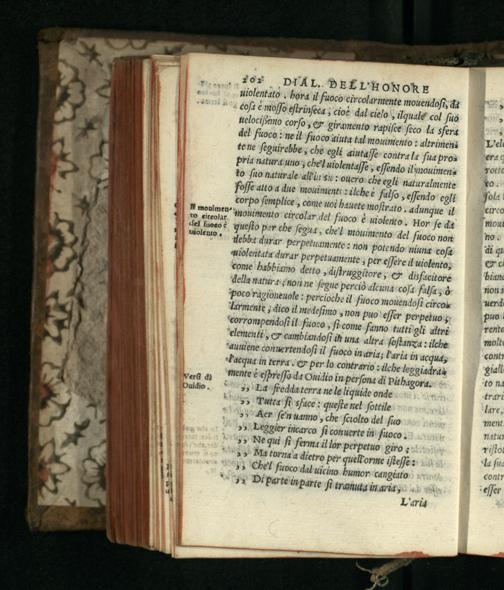 202 DIAL. DELL'HONORE
uiolentato. hora il fuoco circolarmente mouendosi, da
cosa è mosso estrinseca, cioè dal cielo, ilquale col suo
uelocissimo corso, & giramento rapisce seco la sfera
del fuoco: ne il fuoco aiuta tal mouimento: altrimen
te ne seguirebbe, che egli aiutasse contra la sua pro
pria natura uno, che'l uiolentasse, essendo il mouimen
to suo naturale all'in su: ouero che egli naturalmente
fosse atto a due mouimenti: ilche è falso, essendo egli
corpo semplice, come uoi hauete mostrato. adunque il
mouimento circolar del fuoco è uiolento. Hor se da
questo par che segua, che'l mouimento del fuoco non
debba durar perpetuamente: non potendo niuna cosa
uiolentata durar perpetuamente, per essere il uiolento,
come habbiamo detto, distruggitore, & disfacitore
della natura, non ne segue perciò alcuna cosa falsa, ò
poco ragioneuole: percioche il fuoco mouendosi circo
larmente, dico il medesimo, non può esser perpetuo,
corrompendosi il fuoco, sì come fanno tutti gli altri
elementi, & cambiandosi in una altra sostanza: ilche
auuiene conuertendosi il fuoco in aria; l'aria in acqua,
l'acqua in terra. & per lo contrario: ilche leggiadra
mente è espresso da Ouidio in persona di Pithagora.
Il mouimen
to circolar
del fuoco è
uiolento.
Versi di
Ouidio.
,, La fredda terra ne le liquide onde
,, Tutta si sface: queste nel sottile
,, Aer se'n uanno, che sciolto del suo
,, Leggier incarco si conuerte in fuoco.
,, Ne qui si ferma il lor perpetuo giro;
,, Ma torna a dietro per quell'orme istesse:
,, Che'l fuoco dal uicino humor cangiato
,, Di parte in parte si tramuta in aria,
L'aria